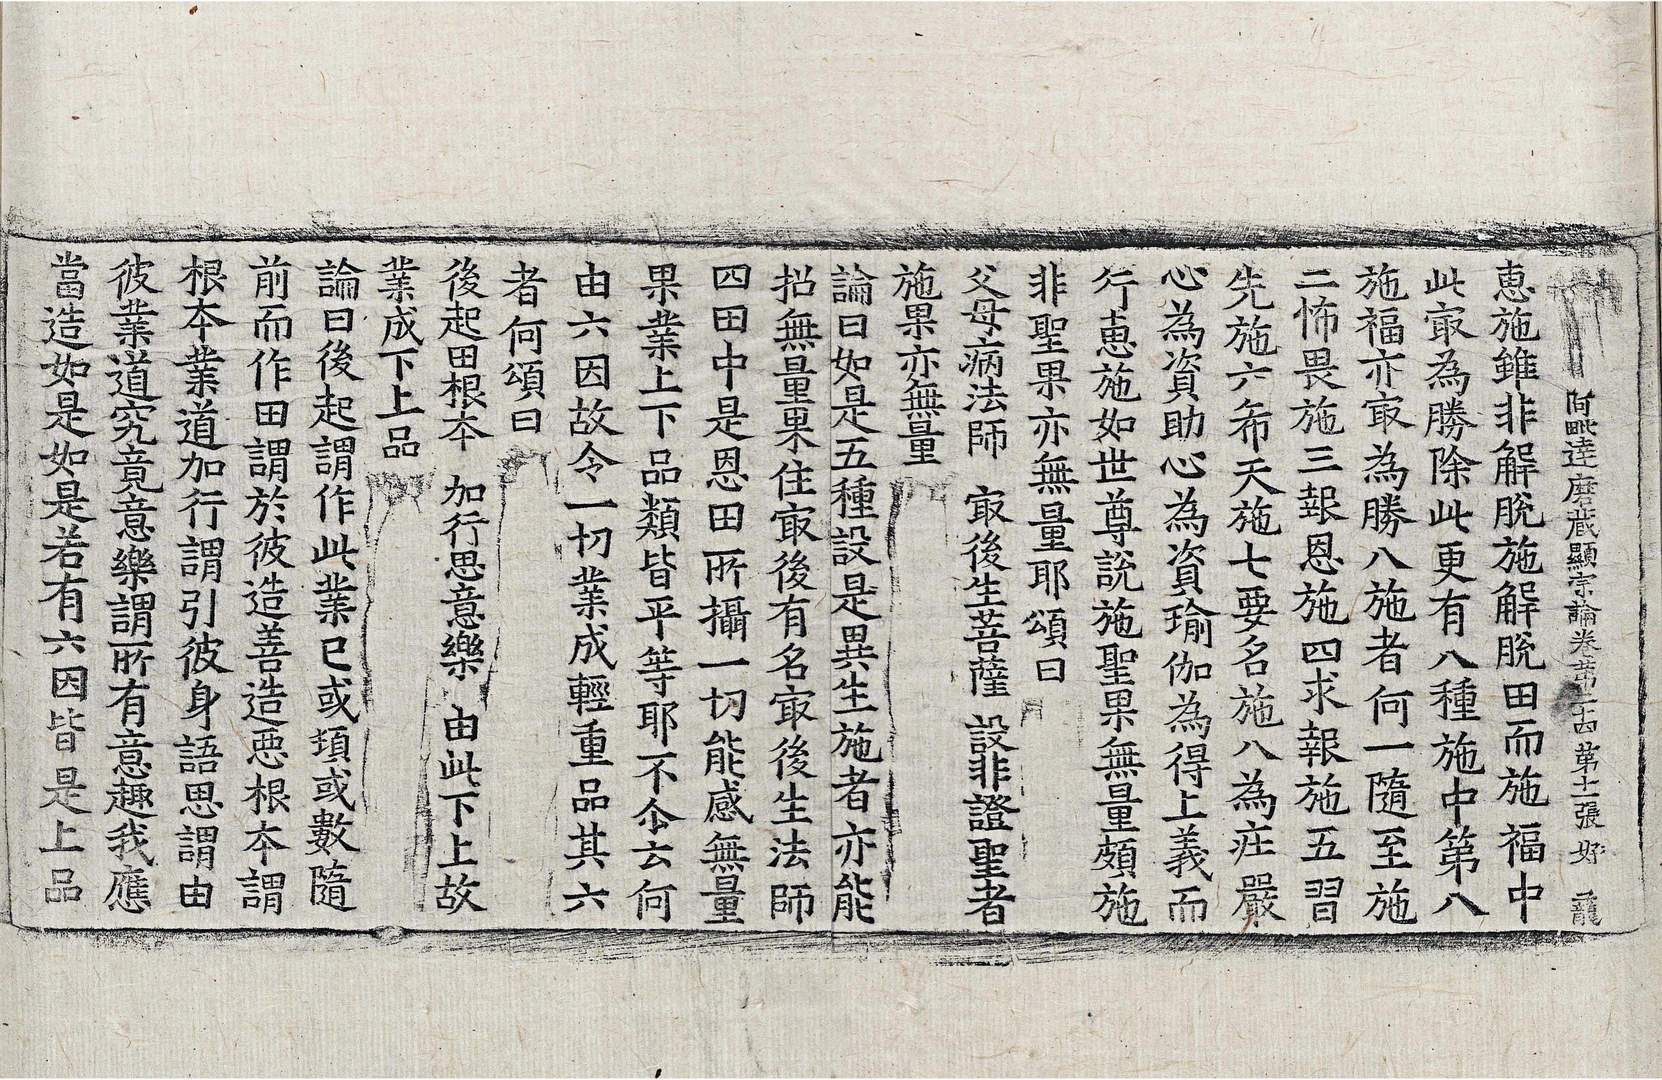 阿毗達磨藏顯宗論卷第二十四 第十二張 好 龍
惠施雖非解脫施解脫田而施福中
此㝡為勝除此更有八種施中第八
施福亦㝡為勝八施者何一隨至施
二怖畏施三報恩施四求報施五習
先施六希天施七要名施八為庄嚴
心為資助心為資瑜伽為得上義而
行惠施如世尊說施聖果無量頗施
非聖果亦無量耶頌曰
父母病法師 㝡後生菩薩 設非證聖者
施果亦無量
論曰如是五種設是異生施者亦能
招無量果住㝡後有名㝡後生法師
四田中是恩田所攝一切能感無量
果業上下品類皆平等耶不尒云何
由六因故令一切業成輕重品其六
者何頌曰
後起田根本 加行思意樂 由此下上故
業成下上品
論曰後起謂作此業已或頃或數隨
前而作田謂於彼造善造惡根本謂
根本業道加行謂引彼身語思謂由
彼業道究竟意樂謂所有意趣我應
當造如是如是若有六因皆是上品